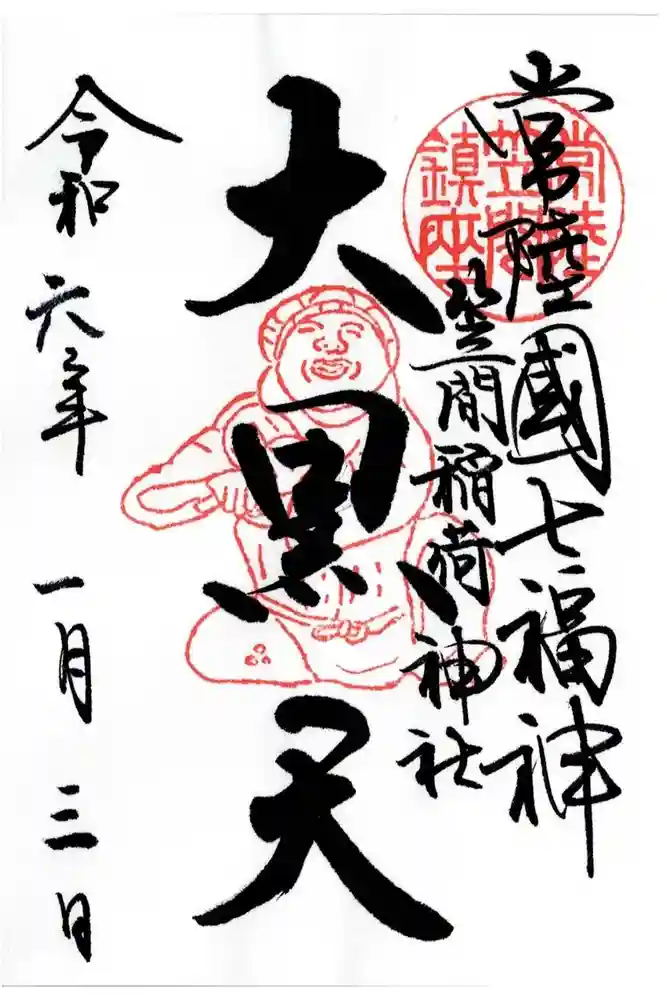 常陸國七福神
笠間稲荷神社
常陸
笠間
鎮座
大黒天
令和六年 一月 三日